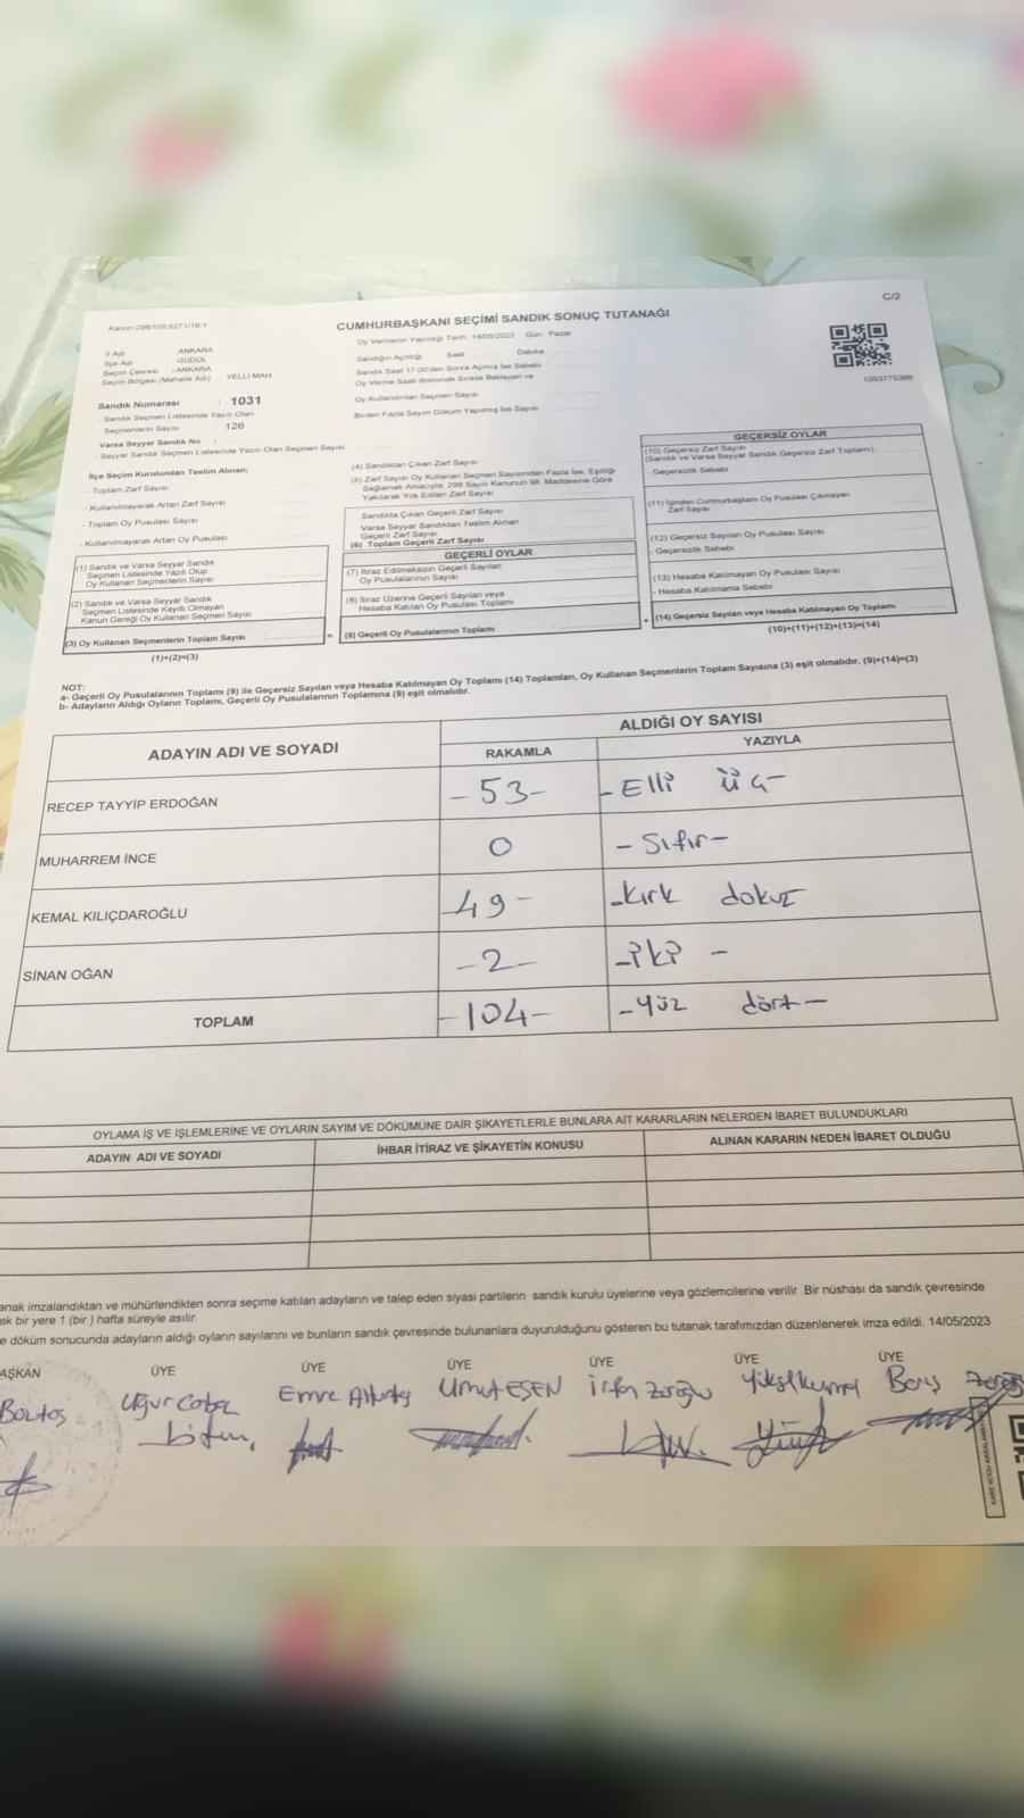 C/2
CUMHURBAŞKANI SEÇİMİ SANDIK SONUÇ TUTANAĞI
Oy Vermenin Yapıldığı Tarih: 14/05/2023 Gün: Pazar
İl Adı ANKARA
İlçe Adı GÜDÜL
Seçim Çevresi ANKARA
Seçim Bölgesi (Mahalle Adı) YELLİ MAH
Sandığın Açıldığı Saat Dakika
Oy Kullanan Seçmen Sayısı
Sandık Numarası : 1031
Sandık Seçmen Listesinde Yazılı Olan
Seçmenlerin Sayısı : 126
Varsa Seyyar Sandık No :
Seyyar Sandık Seçmen Listesinde Yazılı Olan Seçmen Sayısı
İlçe Seçim Kurulundan Teslim Alınan;
- Toplam Zarf Sayısı
- Kullanılmayarak Artan Zarf Sayısı
- Toplam Oy Pusulası Sayısı
- Kullanılmayarak Artan Oy Pusulası
(1) Sandık ve Varsa Seyyar Sandık
Seçmen Listesinde Yazılı Olup
Oy Kullanan Seçmenlerin Sayısı
(2) Sandık ve Varsa Seyyar Sandık
Seçmen Listesinde Kayıtlı Olmayan
Kanun Gereği Oy Kullanan Seçmen Sayısı
(3) Oy Kullanan Seçmenlerin Toplam Sayısı
(1)+(2)=(3)
(4) Sandıktan Çıkan Zarf Sayısı
(5) Zarf Sayısı Oy Kullanan Seçmen Sayısından Fazla İse, Eşitliği
Sağlamak Amacıyla, 298 Sayılı Kanunun 98. Maddesine Göre
Yakılarak Yok Edilen Zarf Sayısı
Sandıkta Çıkan Geçerli Zarf Sayısı
Varsa Seyyar Sandıktan Teslim Alınan
Geçerli Zarf Sayısı
(6) Toplam Geçerli Zarf Sayısı
GEÇERLİ OYLAR
(7) İtiraz Edilmeksizin Geçerli Sayılan
Oy Pusulalarının Sayısı
(8) İtiraz Üzerine Geçerli Sayılan veya
Hesaba Katılan Oy Pusulası Toplamı
(9) Geçerli Oy Pusulalarının Toplamı
GEÇERSİZ OYLAR
(10) Geçersiz Zarf Sayısı
(Sandık ve Varsa Seyyar Sandık Geçersiz Zarf Toplamı)
- Geçersizlik Sebebi
(11) İçinden Cumhurbaşkanı Oy Pusulası Çıkmayan
Zarf Sayısı
(12) Geçersiz Sayılan Oy Pusulası Sayısı
- Geçersizlik Sebebi
(13) Hesaba Katılmayan Oy Pusulası Sayısı
- Hesaba Katılmama Sebebi
(14) Geçersiz Sayılan veya Hesaba Katılmayan Oy Toplamı
(10)+(11)+(12)+(13)=(14)
NOT:
a- Geçerli Oy Pusulalarının Toplamı (9) ile Geçersiz Sayılan veya Hesaba Katılmayan Oy Toplamı (14) Toplamları, Oy Kullanan Seçmenlerin Toplam Sayısına (3) eşit olmalıdır. (9)+(14)=(3)
b- Adayların Aldığı Oyların Toplamı, Geçerli Oy Pusulalarının Toplamına (9) eşit olmalıdır.
ADAYIN ADI VE SOYADI
ALDIĞI OY SAYISI
RAKAMLA YAZIYLA
RECEP TAYYİP ERDOĞAN -53- -Elli üç-
MUHARREM İNCE 0 -Sıfır-
KEMAL KILIÇDAROĞLU -49- -kırk dokuz
SİNAN OĞAN -2- -iki-
TOPLAM -104- -yüz dört-
OYLAMA İŞ VE İŞLEMLERİNE VE OYLARIN SAYIM VE DÖKÜMÜNE DAİR ŞİKAYETLERLE BUNLARA AİT KARARLARIN NELERDEN İBARET BULUNDUKLARI
ADAYIN ADI VE SOYADI İHBAR İTİRAZ VE ŞİKAYETİN KONUSU ALINAN KARARIN NEDEN İBARET OLDUĞU
anak imzalandıktan ve mühürlendikten sonra seçime katılan adayların ve talep eden siyasi partilerin sandık kurulu üyelerine veya gözlemcilerine verilir. Bir nüshası da sandık çevresinde
ak bir yere 1 (bir) hafta süreyle asılır.
e döküm sonucunda adayların aldığı oyların sayılarını ve bunların sandık çevresinde bulunanlara duyurulduğunu gösteren bu tutanak tarafımızdan düzenlenerek imza edildi. 14/05/2023
AŞKAN ÜYE ÜYE ÜYE ÜYE ÜYE ÜYE
Uğur Emre Umut ESEN İrfan Barış